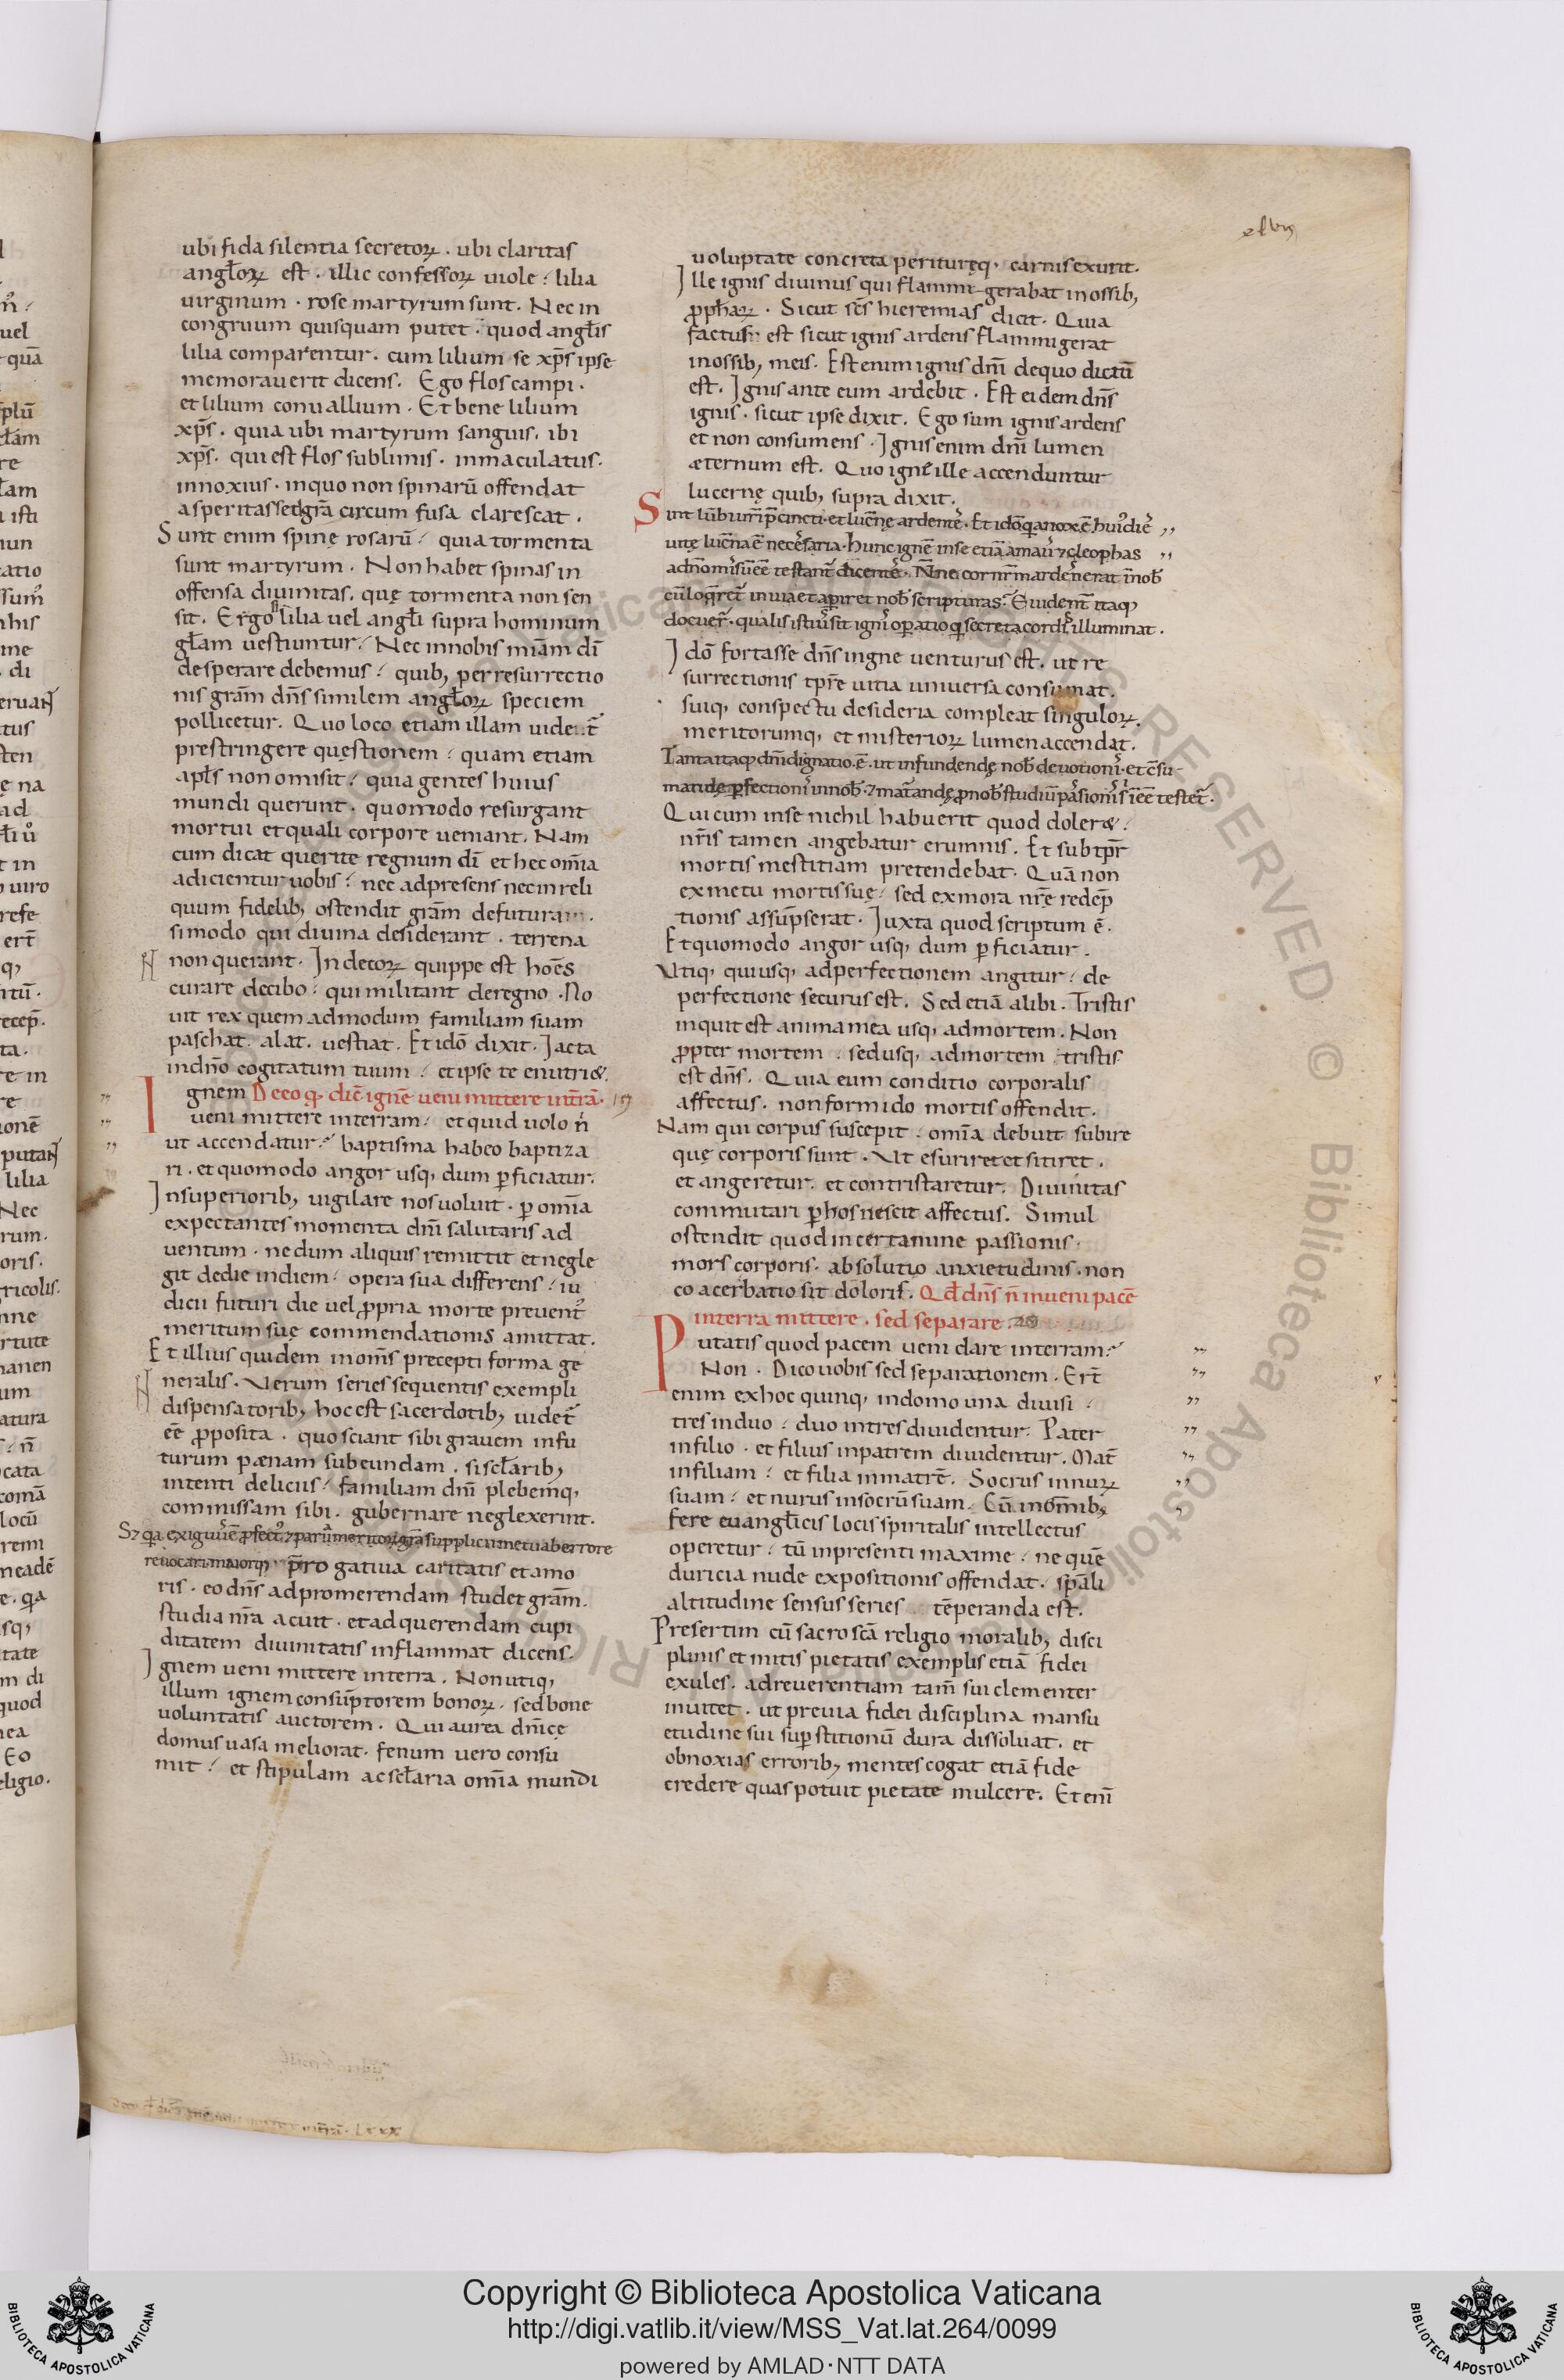 xlvij
ubi fida silentia secretoꝝ . ubi claritas
angłoꝝ est . illic confessoꝝ uiole : lilia
uirginum . rose martyrum sunt . Nec in
congruum quisquam putet . quod angłis
lilia comparentur . cum lilium se xp̄s ipse
memorauerit dicens . Ego flos campi .
et lilium conuallium . Et bene lilium
xp̄s . quia ubi martyrum sanguis . ibi
xp̄s . qui est flos sublimis . inmaculatus .
innoxius . inquo non spinarū offendat
asperitas sed gr̄a circum fusa clarescat .
Sunt enim spinę rosarū : quia tormenta
sunt martyrum . Non habet spinas in
offensa diuinitas . quę tormenta non sen
sit . Ergo si lilia uel angłi supra hominum
głam uestiuntur : Nec innobis miam̄ dī
desperare debemus : quib, per resurrectio
nis gram̄ dn̄s similem angłoꝝ speciem
pollicetur . Quo loco etiam illam uidet̄
prestringere quęstionem : quam etiam
apłs non omisit : quia gentes huius
mundi querunt . quomodo resurgant
mortui et quali corpore ueniant . Nam
cum dicat querite regnum dī et hec om̄ia
adicientur uobis : nec adpresens necinreli
quum fidelib, ostendit gram̄ defuturam .
simodo qui diuina desiderant . terrena
non querant . Indecoꝝ quippe est hoēs
curare decibo : qui militant deregno . No
uit rex quem admodum familiam suam
paschat . alat . uestiat . Et idō dixit . Iacta
indn̄o cogitatum tuum : et ipse te enutriet .
Ignem De eo qd dic̄ ignē ueni mittere inт̄rā .
ueni mittere interram : et quid uolo n̄
ut accendatur : baptisma habeo baptiza
ri . et quomodo angor usq, dum ꝑficiatur .
Insuperiorib, uigilare nos uoluit . ꝑ omīa
expectantes momenta dn̄i salutaris ad
uentum . ne dum aliquis remittit et negle
git dedie indiem : opera sua differens : iu
dicii futuri die uel ꝓpria morte preuent᾽
meritum suę commendationis amittat .
Et illius quidem inomīs precepti forma ge
neralis . Verum series sequentis exempli
dispensatorib, hoc est sacerdotib, uidet̄
eē ꝓposita . quo sciant sibi grauem infu
turum pænam subeundam . si scłarib,
intenti deliciis : familiam dn̄i plebemq,
commissam sibi . gubernare neglexerint .
S⁊ qa exiguꝰ ē ꝓfectꝰ ⁊ paruā meritoꝝ gr̄a supplicii metu ab errore
reuocari maiorq, p̄ro gatiua caritatis et amo
ris . eo dn̄s adpromerendam studet gram̄ .
studia nr̄a acuit . et ad querendam cupi
ditatem diuinitatis inflammat dicens .
Ignem ueni mittere interra . Non utiq,
illum ignem consūptorem bonoꝝ . sed bone
uoluntatis auctorem . Qui aurea dn̄icę
domus uasa meliorat . fenum uero consu
mit : et stipulam ac scłaria omīa mundi
uoluptate concreta perituręq, carnis exurit .
Ille ignis diuinus qui flammigerabat inossib,
ꝓphaꝝ . Sicut scs̄ hieremias dicit . Quia
factus est sicut ignis ardens flammigerat
inossib, meis . Est enim ignis dn̄i dequo dictū
est . Ignis ante eum ardebit . Est eidem dn̄s
ignis . sicut ipse dixit . Ego sum ignis ardens
et non consumens . Ignis enim dn̄i lumen
æternum est . Quo igne ille accenduntur
lucernę quib, supra dixit .
Sint lūbi ur̄i p̄cincti . et lucn̄ę ardentes . Et idō qa nox ē huiꝰ diē
uitę lucn̄a ē necessaria . Hunc ignē inse etiā amaus ⁊ cleophas
adn̄o misum eē testant̄ dicentes . Nōne cor nr̄m ardens erat in nob
cū loqret̄ inuia et apiret nob scripturas : Euident̄ itaq,
docuer̄ . qualis istius sit ignis oꝑatio q secreta cordis illuminat .
Idō fortasse dn̄s ingne uenturus est . ut re
surrectionis tpr̄e uitia uniuersa consumat .
suiq, conspectu desideria compleat singuloꝝ .
meritorumq, et misterioꝝ lumen accendat .
Tanta itaq, dn̄i dignatio ē . ut infundendę nob deuotionis . et c̄su
mandę ꝑfectionis innob . ⁊ mat̄andę ꝓ nob studiū passionis īeē testet̄ .
Qui cum inse nichil habuerit quod doleret :
nr̄is tamen angebatur erumnis . Et sub tpr̄
mortis mestitiam pretendebat . Quā non
ex metu mortis suę : sed ex mora nr̄e redēp
tionis assūpserat . Iuxta quod scriptum ē .
Et quomodo angor usq, dum ꝑficiatur .
Vtiq, qui usq, adperfectionem angitur : de
perfectione securus est . Sed etiā alibi . Tristis
inquit est anima mea usq, admortem . Non
ꝓpter mortem . sed usq, admortem tristis
est dn̄s . Quia eum conditio corporalis
affectus . non formido mortis offendit .
Nam qui corpus suscepit : omīa debuit subire
quę corporis sunt . Vt esuriret et sitiret .
et angeretur . et contristaretur . Diuinitas
commutari ꝑ hos nescit affectus . Simul
ostendit quod incertamine passionis .
mors corporis . absolutio anxietudinis . non
coacerbatio sit doloris . Qd̄ dn̄s n̄ inueni pacē
interra mittere . sed separare .
Putatis quod pacem ueni dare interram :
Non . Dico uobis sed separationem . Ert̄
enim exhoc quinq, indomo una diuisi :
tres induo : duo intres diuidentur . Pater
infilio . et filius inpatrem diuidentur . Mat̄
infiliam : et filia inmatrē . Socrus innurū
suam : et nurus insocrū suam . Cū inomīb,
fere euangłicis locis spiritalis intellectus
operetur : tū inpresenti maxime : ne quē
duricia nude expositionis offendat . spāli
altitudine sensus series tēperanda est .
Presertim cū sacro scā religio moralib, disci
plinis et mitis pietatis exemplis etiā fidei
exules . adreuerentiam tam̄ sui clementer
inuitet . ut preuia fidei disciplina mansu
etudine sui suꝑstitionū dura dissoluat . et
obnoxias errorib, mentes cogat etiā fide
credere quas potuit pietate mulcere . Et eni᷑
Copyright © Biblioteca Apostolica Vaticana
http://digi.vatlib.it/view/MSS_Vat.lat.264/0099
powered by AMLAD·NTT DATA
BIBLIOTECA APOSTOLICA VATICANA
BIBLIOTECA APOSTOLICA VATICANA